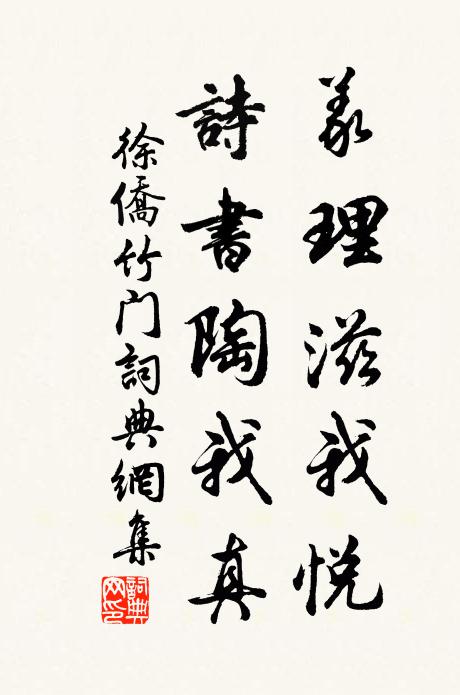 義理滋我悦
詩書陶我真
徐僑竹门詞典網集
詞典网印